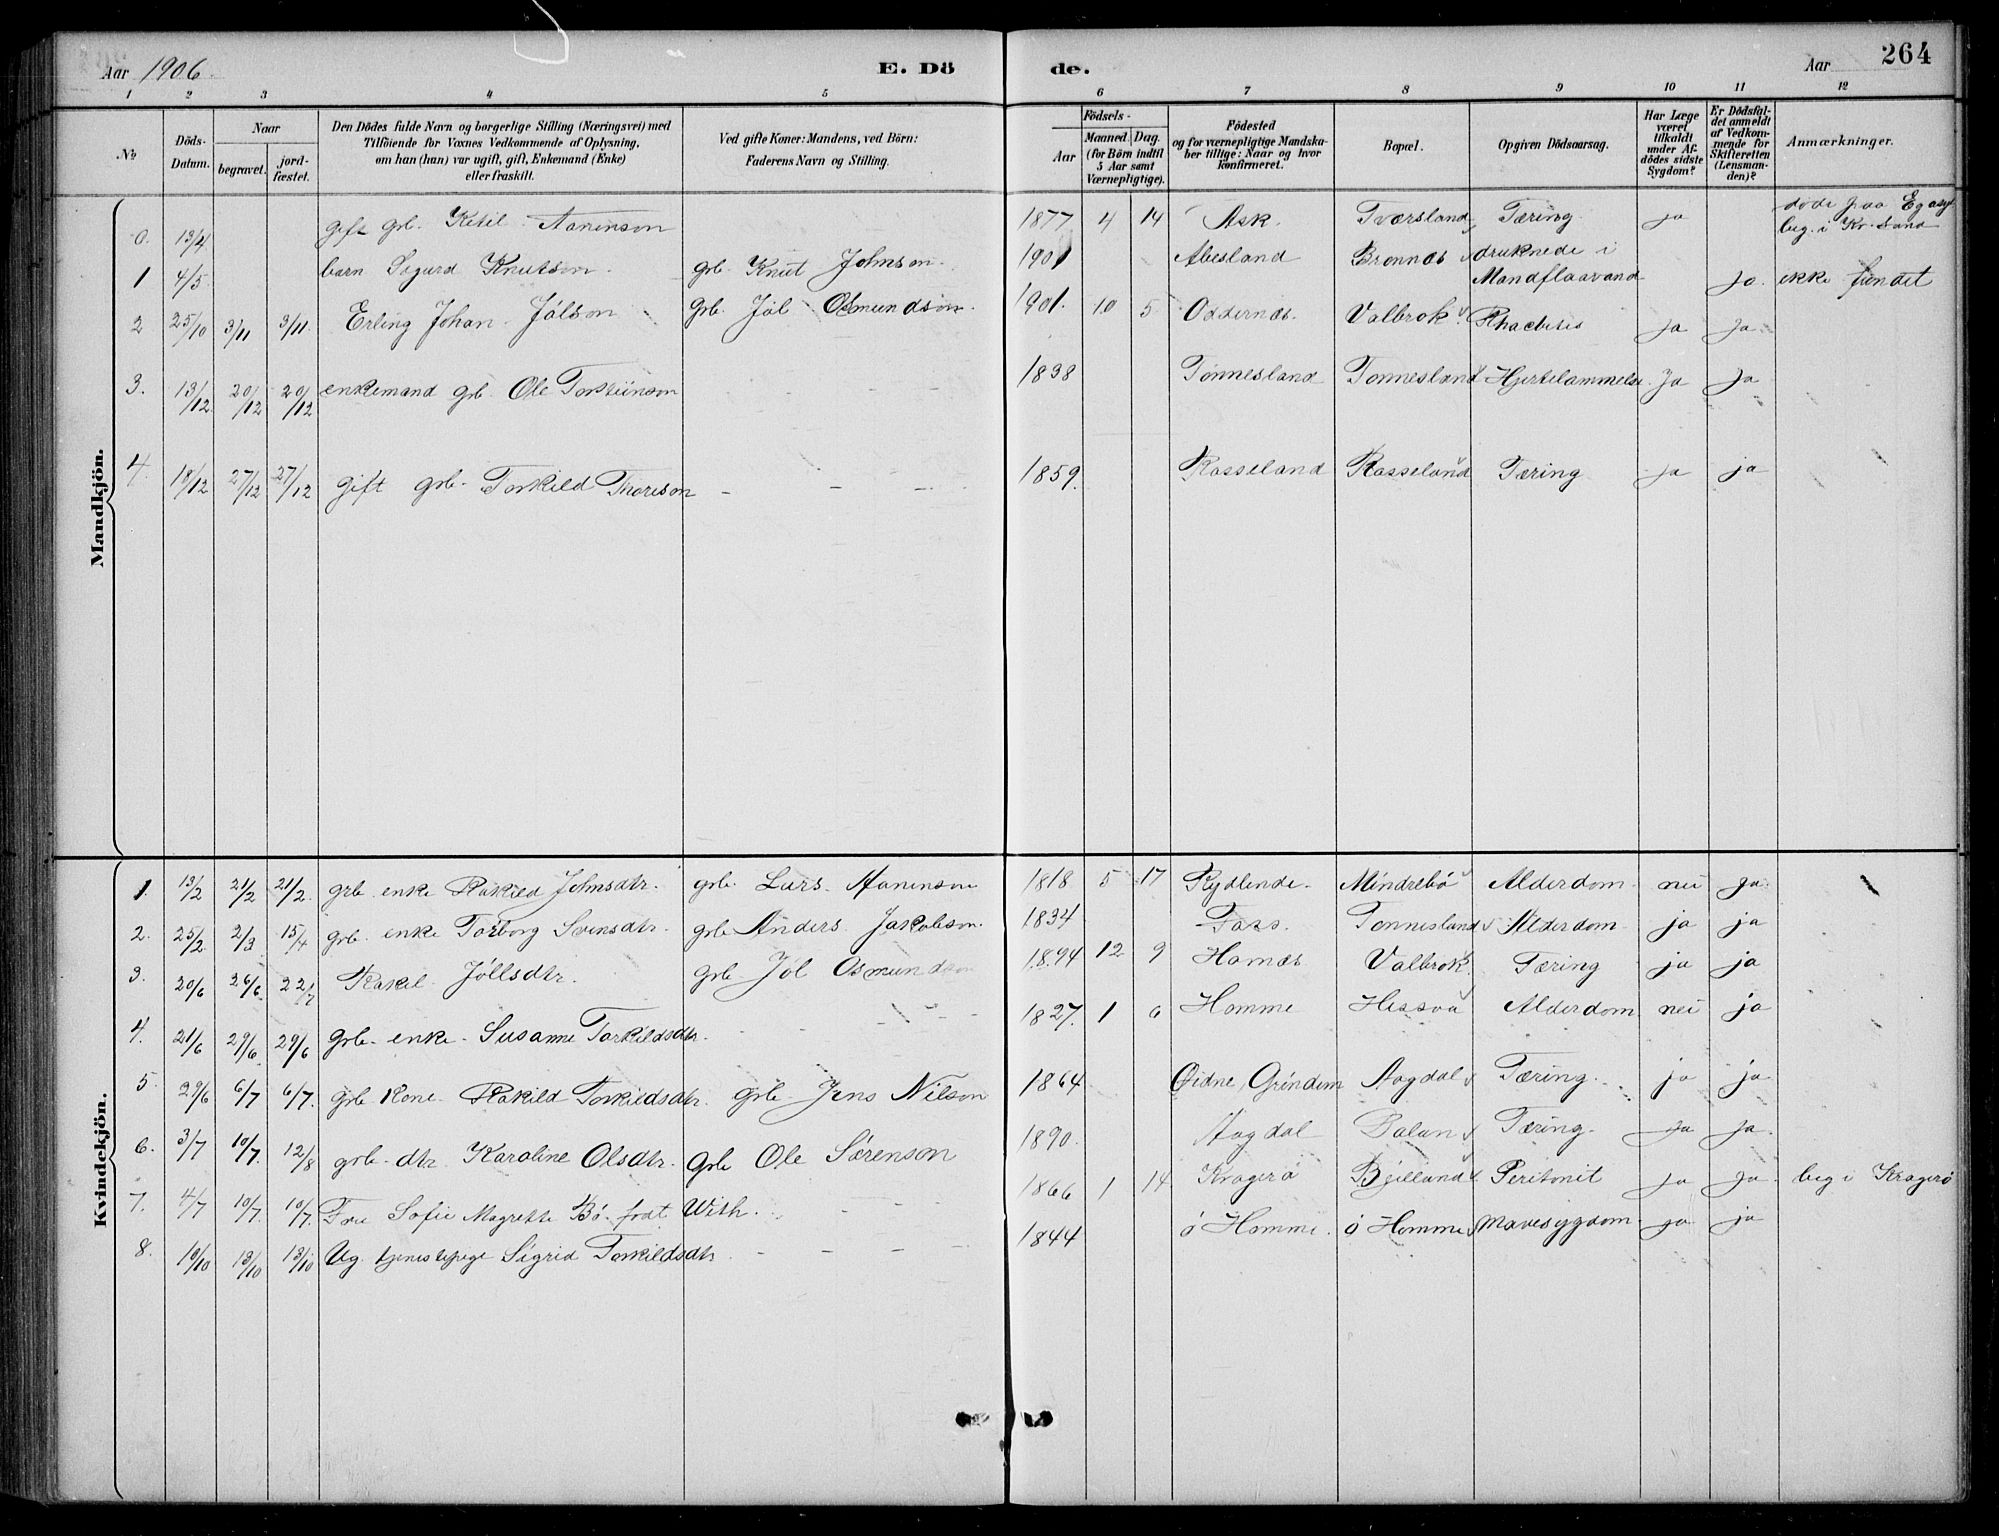 Aar 1906. E. Dö de. Aar 264
1 2 3 4 5 6 7 8 9 10 11 12
No
Döds-Datum.
Naar
begravet. jord-fæstet.
Den Dödes fulde Navn og borgerlige Stilling (Næringsvei) med
Tilföiende for Voxnes Vedkommende af Oplysning,
om han (hun) var ugift, gift, Enkemand (Enke)
eller fraskilt.
Ved gifte Koner: Mandens, ved Börn:
Faderens Navn og Stilling.
Födsels-
Aar Maaned. Dag.
(for Börn indtil
5 Aar samt
Værnepligtige).
Födested
og for værnepligtige Mandska-
ber tillige: Naar og hvor
konfirmeret.
Bopæl.
Opgiven Dödsaarsag.
Har Læge
været
tilkaldt
under Af-
dödes sidste
Sygdom?
Er Dödsfal-
det anmeldt
af Vedkom-
mende for
Skifteretten
(Lensman-
den)?
Anmærkninger.
Mandkjön.
0. 13/4 gift grb. Ketil Aanenson 1877 4 14 Ask. Tværsland Tæring ja döde paa Eg asyl beg. i Kr. Sand
1 4/5 barn Sigurd Knutson. grb. Knut Johnson. 1901 Abesland Brennæs druknede i Mandflaavand ja. ikke fundet
2 25/10 3/11 3/11. Erling Johan Jölson grb. Jöl Osmundson. 1901. 10 5 Oddernæs. Valbrok Rhachitis ja ja
3. 13/12 20/12 20/12 enkemand grb. Ole Torsteinson - - - 1838 Tönnesland Tonnesland Hjertelammelse. Ja Ja
4. 18/12 27/12 27/12 gift grb. Torkild Thorison - - - 1859. Rosseland Rosseland Tæring ja ja
Kvindekjön.
1. 13/2 21/2 21/2. grb. enke Rakild Johnsdtr. grb. Lars Aanenson 1818 5 17 Kydlende. Mindrebö Alderdom nei ja
2. 25/2 2/3 15/4 grb. enke Torborg Svensdtr. grb. Anders Jakobson. 1834 Foss. Tonnesland Alderdom ja ja
3. 20/6 26/6. 22/7 Rakel Jöllsdtr. grb. Jöl Osmundson 1894 12 9 Homæs Valbrok Tæring ja ja
4. 21/6 29/6. 29/6 grb. enke. Susanne Torkildsdtr. - - - - 1827. 1 6 Homme Hessvå Alderdom nei ja
5. 29/6 6/7 6/7. grb Kone. Rakild Torkildsdtr. grb. Jens Nilson 1864 Öidne, Grindem Aagdal Tæring. ja ja
6. 3/7 10/7. 12/8 grb. dtr. Karoline Olsdtr. grb Ole Sörenson 1890. Aagdal Dalan Tæring. ja ja.
7. 4/7 10/7. 10/7. Fru Sofie Magrette Bö. födt With. - - 1866 1 14 Kragerö Bjelland Peritonit ja ja beg i Kragerö
8. 10/10 13/10 13/10 Ug. tjenestepige Sigrid Torkildsdtr - - - - 1844 ö Homme. ö Homme mavesygdom ja ja